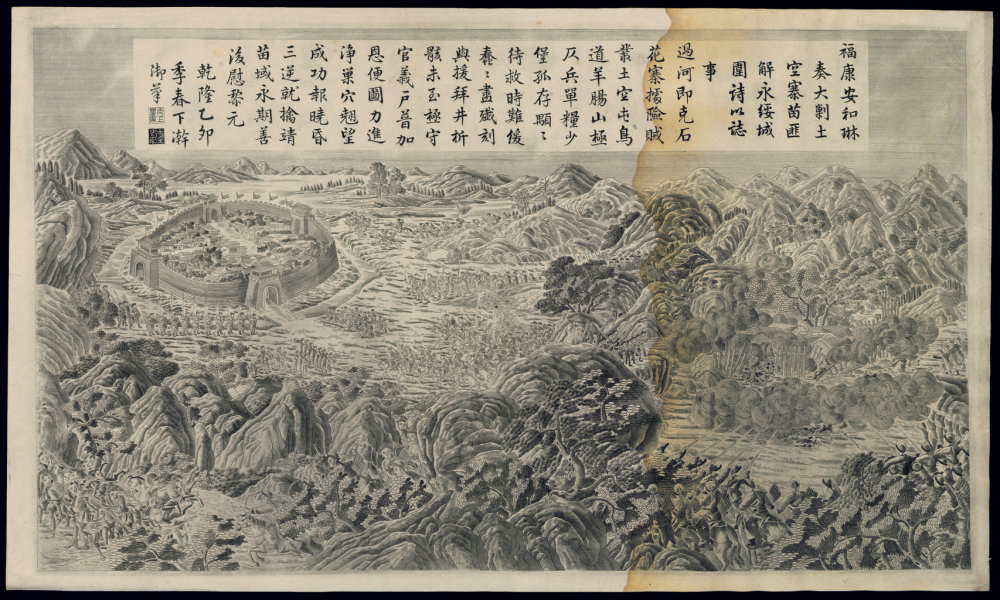 福康安和琳
奏大剿土
空寨苗匪
解永綏城
圍詩以誌
事
過河即克石
花寨據險賊
叢土空屯鳥
道羊腸山極
仄兵單糧少
堡孤存顒〻
待救時難緩
蠢〻盡殲刻
與援拜井折
骸未至極守
官義戶普加
恩便圖力進
淨巢穴翹望
成功報曉昏
三逆就擒靖
苗域永期善
後慰黎元
乾隆乙卯
季春下澣
御筆